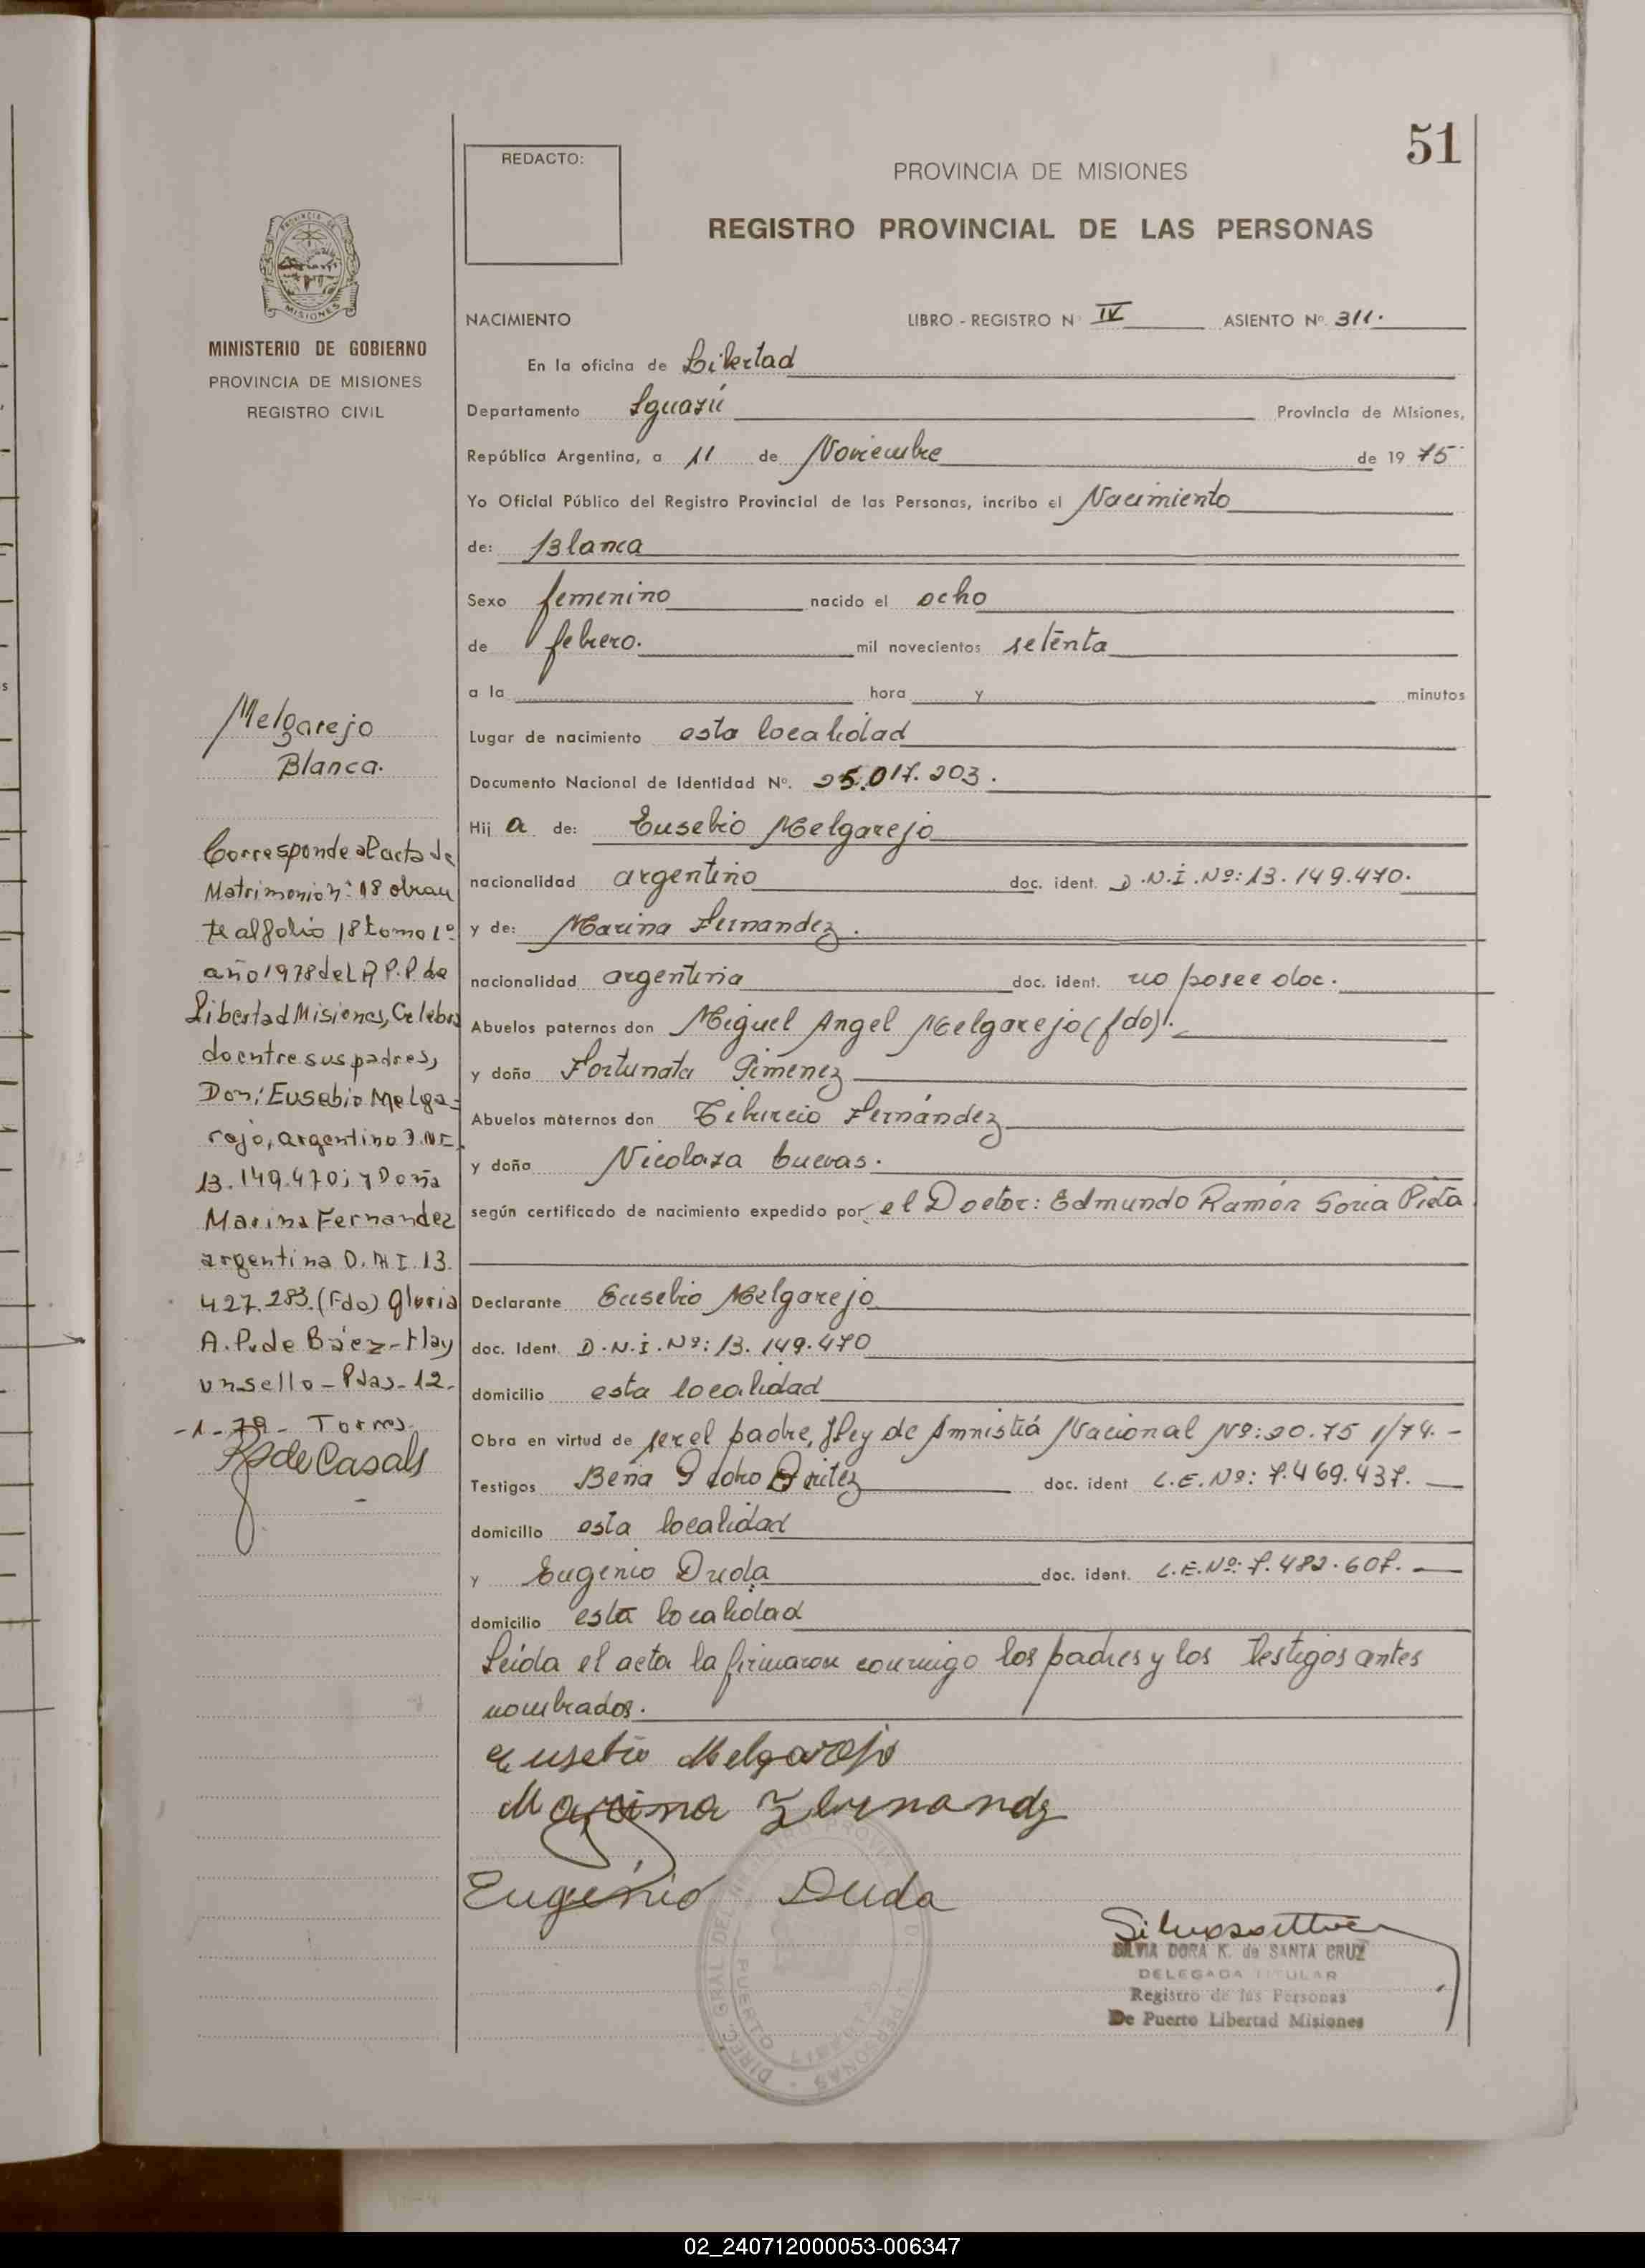 51
REDACTO:
PROVINCIA DE MISIONES
REGISTRO PROVINCIAL DE LAS PERSONAS
MISIONES
MINISTERIO DE GOBIERNO
PROVINCIA DE MISIONES
REGISTRO CIVIL
NACIMIENTO LIBRO - REGISTRO N° IV ASIENTO N° 311.
En la oficina de Libertad
Departamento Iguazú Provincia de Misiones,
República Argentina, a 11 de Noviembre de 19 75
Yo Oficial Público del Registro Provincial de las Personas, incribo el Nacimiento
de: Blanca
Sexo femenino nacido el ocho
de febrero. mil novecientos setenta
a la hora y minutos
Lugar de nacimiento esta localidad
Documento Nacional de Identidad N°. 25.017.203.
Hij a de: Eusebio Melgarejo
nacionalidad argentino doc. ident. D.N.I.Nº: 13.149.470.
y de: Marina Fernandez.
nacionalidad argentina doc. ident. no posee doc.
Abuelos paternos don Miguel Angel Melgarejo (fdo).
y doña Fortunata Gimenez
Abuelos maternos don Tiburcio Fernández
y doña Nicolaza Cuevas.
según certificado de nacimiento expedido por el Doctor: Edmundo Ramón Soria
Declarante Eusebio Melgarejo
doc. Ident. D.N.I.Nº: 13.149.470
domicilio esta localidad
Obra en virtud de ser el padre, Ley de Amnistiá Nacional Nº: 20.751/74.-
Testigos doc. ident L.E.Nº: 7.469.437.
domicilio esta localidad
y Eugenio Duda doc. ident. L.E.Nº: 7.482.607.
domicilio esta localidad
Leida el acta la firmaron conmigo los padres y los testigos antes
nombrados.
Eusebio Melgarejo
Marina Fernandz
Eugenio Duda
SILVIA DORA K. de SANTA CRUZ
DELEGADA TITULAR
Registro de las Personas
De Puerto Libertad Misiones
Melgarejo
Blanca.
Corresponde al acta de
Matrimonio nº 18 obran
te al folio 18 tomo 1º
año 1978 del R.P.P. de
Libertad Misiones, Celebra
do entre sus padres,
Don: Eusebio Melga=
rejo, argentino D.N.I.
13.149.470; y Doña
Marina Fernandez
argentina D.N.I. 13.
427.283. (Fdo) Gloria
A. P. de Báez - Hay
un sello - Pdas - 12.
-1-79- Torres
de Casals
02_240712000053-006347